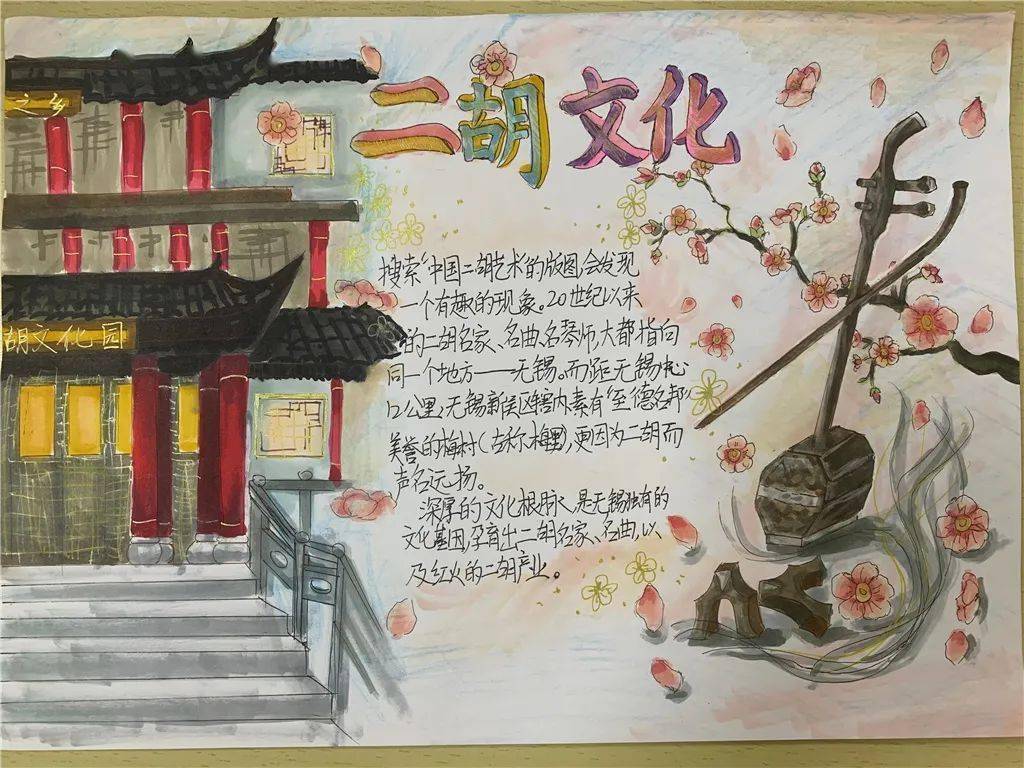 之乡
胡文化园
二胡文化
搜索“中国二胡艺术”的版图,会发现
一个有趣的现象。20世纪以来
的二胡名家、名曲、名琴师,大都指向
同一个地方——无锡。而距无锡中心
12公里,无锡新吴区辖内素有“至德名邦”
美誉的梅村(古称梅里),更因为二胡而
声名远扬。
深厚的文化根脉,是无锡独有的
文化基因,孕育出二胡名家、名曲,以
及红火的二胡产业。